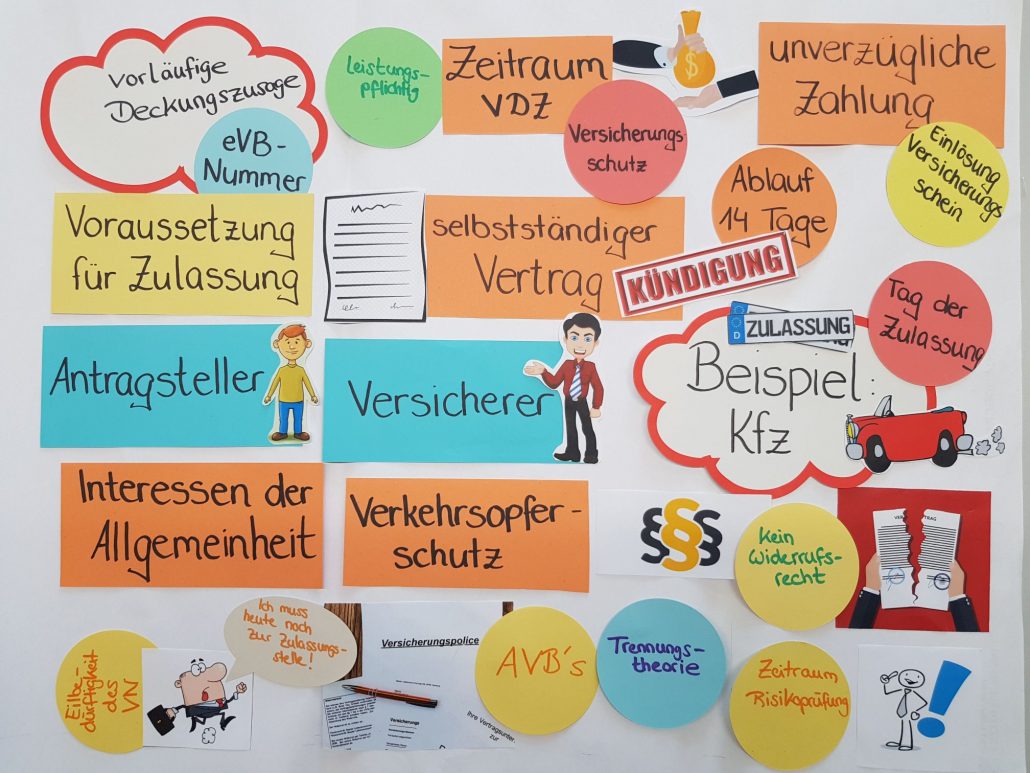 vorläufige
Deckungszusage
eVB-
Nummer
Leistungs-
pflichtig
Zeitraum
VDZ
$
Versicherungs
schutz
unverzügliche
Zahlung
Einlösung
Versicherungs
schein
Ablauf
14 Tage
Voraussetzung
für Zulassung
selbstständiger
Vertrag
KÜNDIGUNG
Tag der
Zulassung
D ZULASSUNG
Beispiel:
Kfz
Antragsteller
Versicherer
Interessen der
Allgemeinheit
Verkehrsopfer-
schutz
§§§
kein
Widerrufs-
recht
Eilbe-
dürftigkeit
des
VN
Ich muss
heute noch
zur Zulassungs-
stelle!
Versicherungspolice
Versicherungs
Ihre Vertragsunter.
zur
AVB's
Trennungs-
theorie
Zeitraum
Risikoprüfung
!